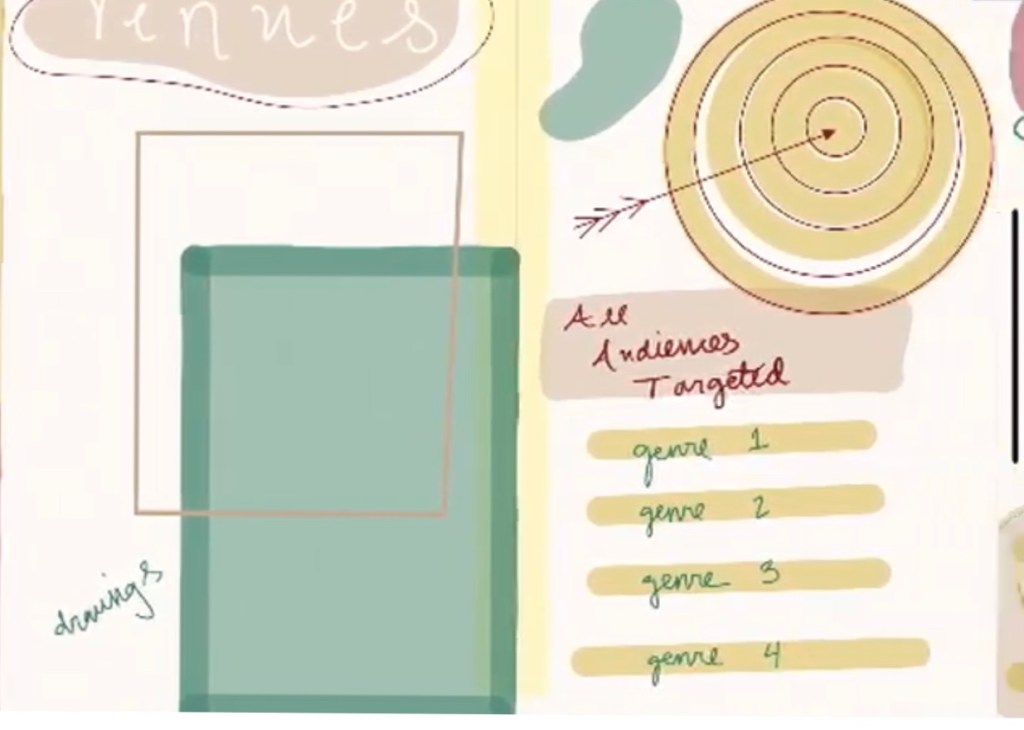 Venues
drawings
All
Audiences
Targeted
genre 1
genre 2
genre 3
genre 4